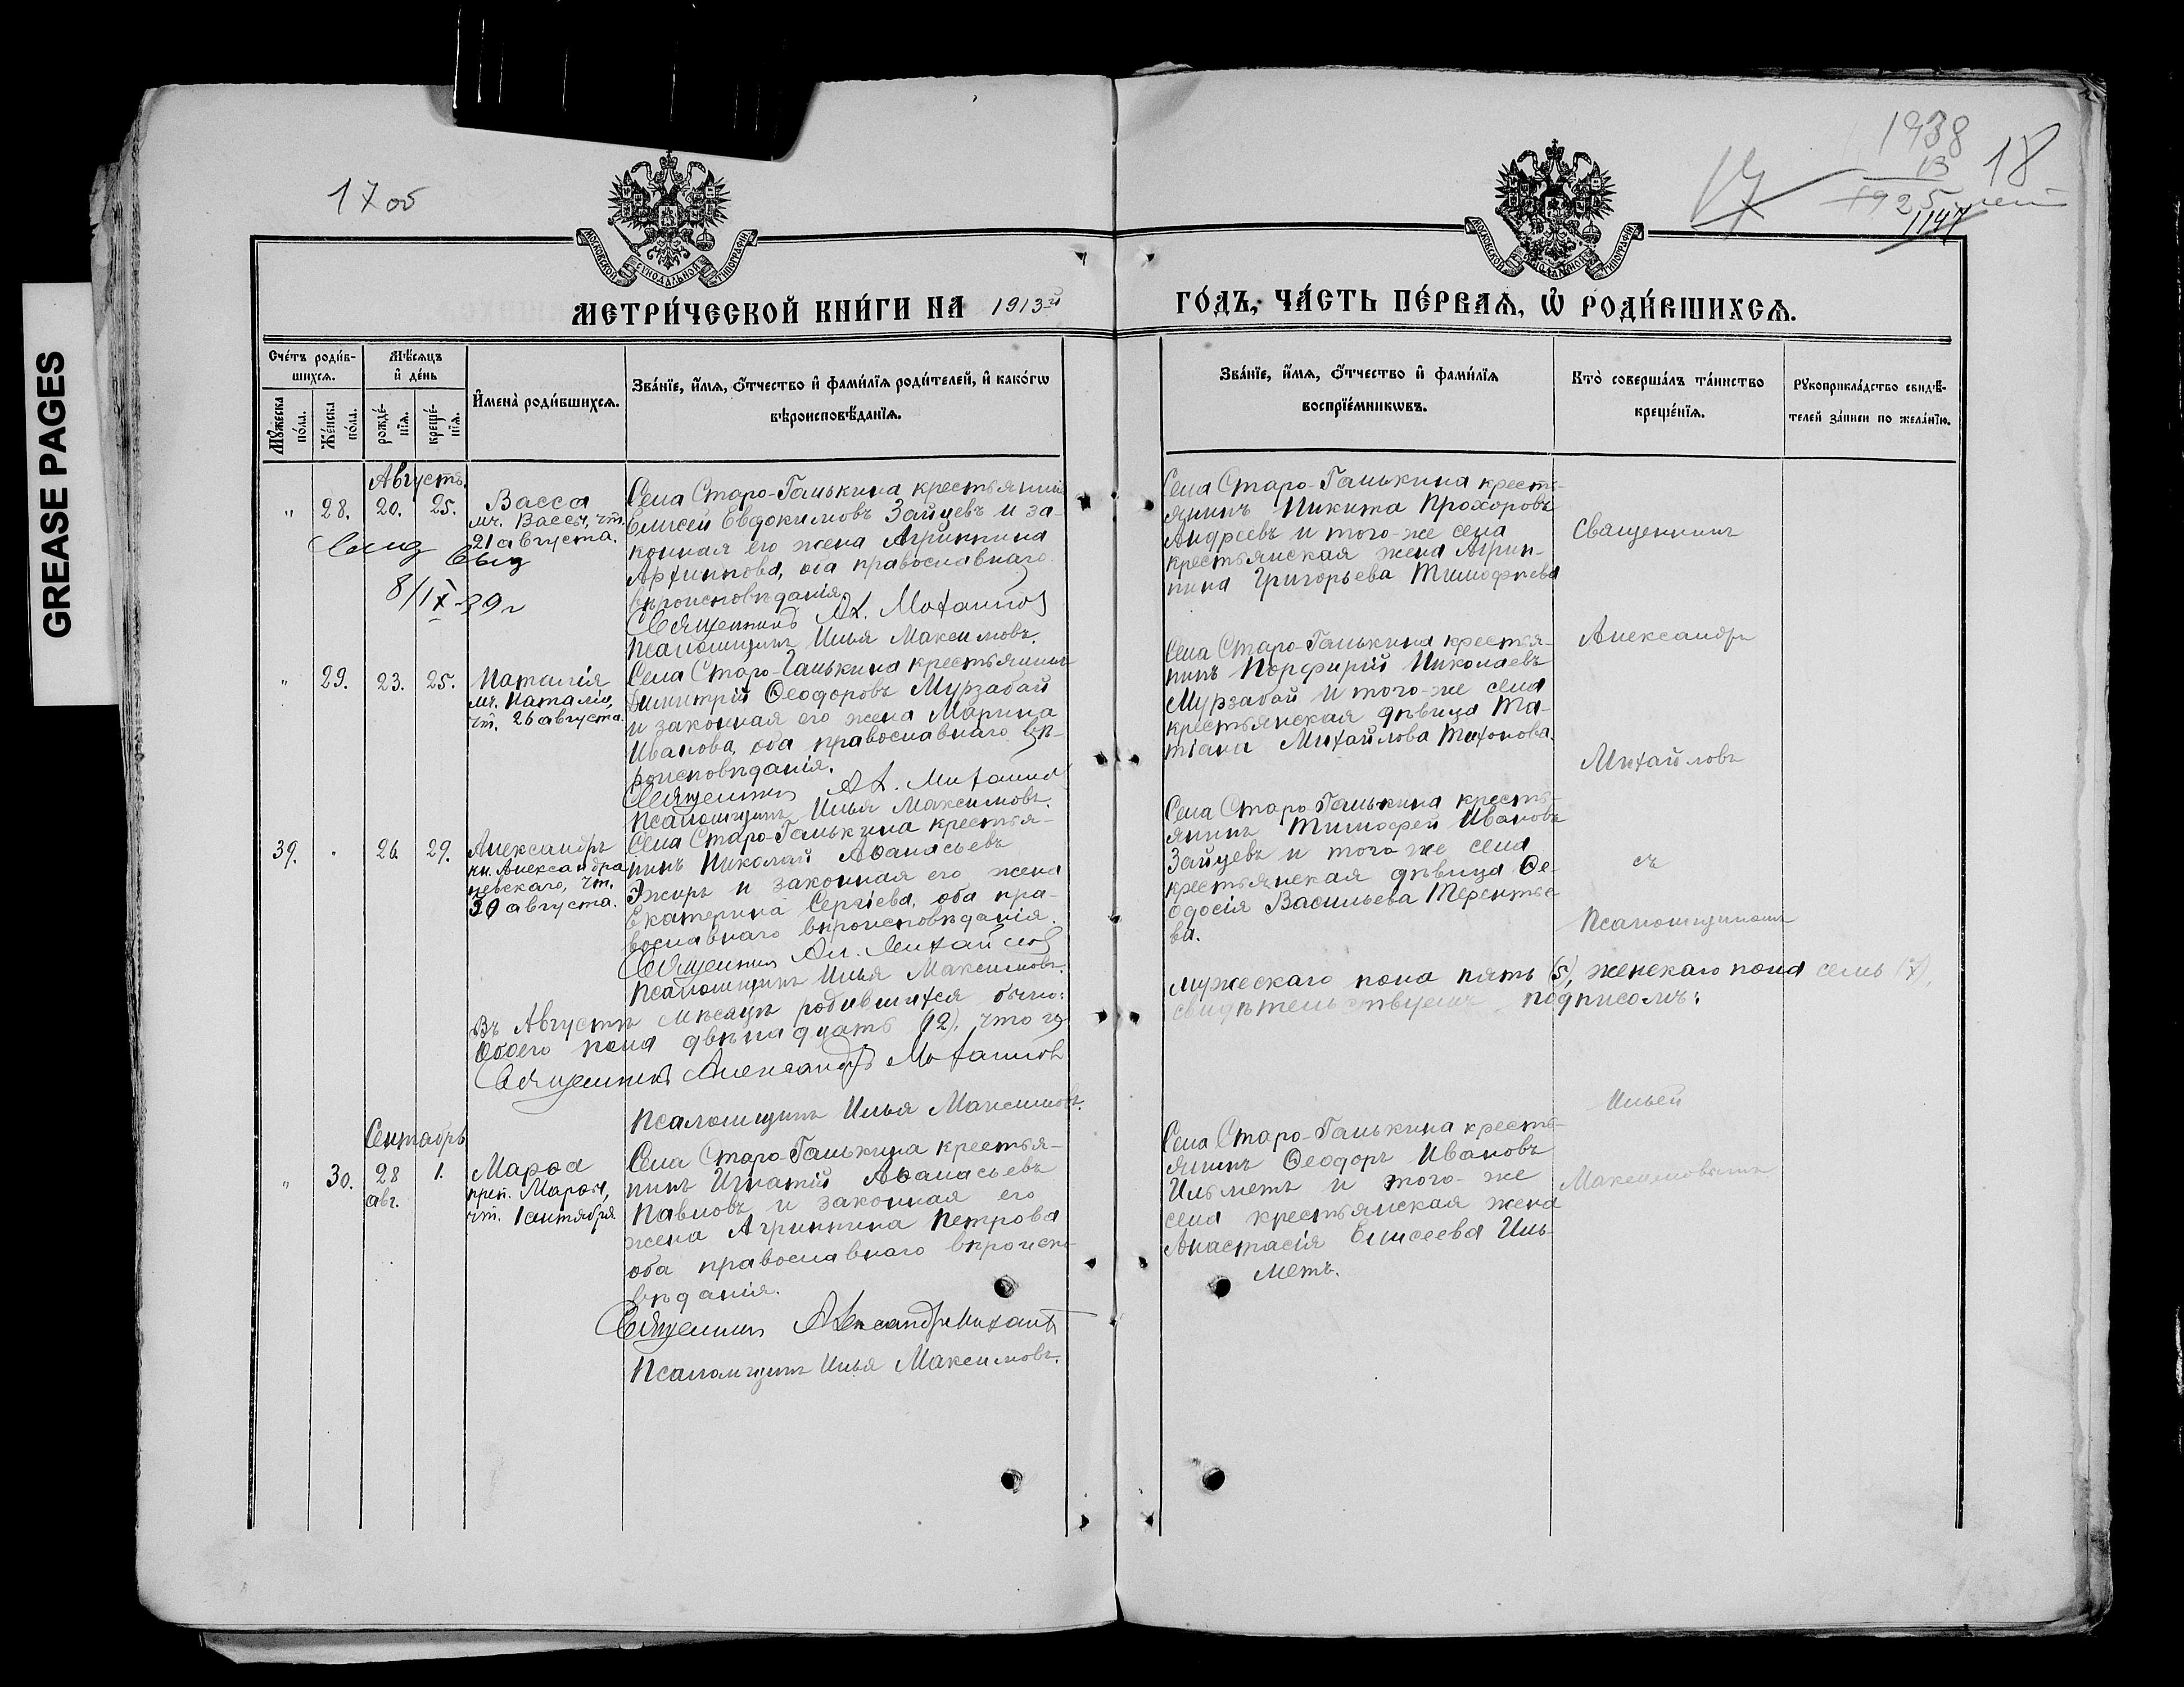 GREASE PAGES
17 об
1938
13
1925
17
18
1147
МОСКОВСКОЙ СѴНОДАЛЬНОЙ ТИПОГРАФІИ
МОСКОВСКОЙ СѴНОДАЛЬНОЙ ТИПОГРАФІИ
МЕТРИ́ЧЕСКОЙ КНИ́ГИ НА 1913й
ГО́ДЪ, ЧА́СТЬ ПЕ́РВАЯ, Ѡ҆ РОДИ́ВШИХСЯ.
Счётъ роди́в-
шихся.
Мѣ́сяцъ
и҆ де́нь
Мꙋ́жеска
по́ла.
Же́нска
по́ла.
рожде́-
нїѧ.
креще́-
нїѧ.
И҆мена̀ роди́вшихся.
Зва́нїе, и҆́мѧ, ѻ҆́тчество и҆ фами́лїѧ роди́телей, и҆ како́гѡ
вѣроисповѣ́данїѧ.
Зва́нїе, и҆́мѧ, ѻ҆́тчество и҆ фами́лїѧ
воспрїе́мникѡвъ.
Кто̀ соверша́лъ та́инство
креще́нїѧ.
Рꙋкоприкла́дство свидѣ́-
телей за́писи по жела́нїю.
Августъ.
" 28. 20. 25.
Васса
мч. Вассы, чт.
21 августа.
8/IX-39 г
Села Старо-Ганькина крестьянинъ
Елисей Евдокимовъ Зайцевъ и за-
конная его жена Агриппина
Архиппова, оба православнаго
вѣроисповѣданія.
Священникъ Ал. Михайловъ
Псаломщикъ Илья Максимовъ.
Села Старо-Ганькина кресть-
янинъ Никита Прохоровъ
Андреевъ и того-же села
крестьянская жена Агрип-
пина Григорьева Тимофѣева
Священникъ
" 29. 23. 25.
Наталія
мч. Наталіи,
чт. 26 августа.
Села Старо-Ганькина крестьянинъ
Димитрій Ѳеодоровъ Мурзабай
и законная его жена Марина
Иванова, оба православнаго вѣ-
роисповѣданія.
Священникъ Ал. Михайловъ
Псаломщикъ Илья Максимовъ.
Села Старо-Ганькина крестья-
нинъ Порфирій Николаевъ
Мурзабай и того-же села
крестьянская дѣвица Та-
тіана Михайлова
Александръ
Михайловъ
39. " 26. 29.
Александръ
кн. Александра
невскаго, чт.
30 августа.
Села Старо-Ганькина крестья-
нинъ Николай Аѳанасьевъ
и законная его жена
Екатерина Сергіева, оба пра-
вославнаго вѣроисповѣданія.
Священникъ Ал. Михайловъ
Псаломщикъ Илья Максимовъ.
Села Старо-Ганькина кресть-
янинъ Тимофей Ивановъ
Зайцевъ и того-же села
крестьянская дѣвица Ѳе-
одосія Васильева Терентье-
ва.
съ
Псаломщикомъ
Въ Августѣ мѣсяцѣ родившихся было:
мужескаго пола пять (5), женскаго пола семь (7),
Обоего пола двѣнадцать (12). что и
свидѣтельствуемъ подписомъ:
Священникъ Александръ Михайловъ
Псаломщикъ Илья Максимовъ.
Ильей
Максимовымъ
Сентябрь
" 30. 28 1.
авг.
Марѳа
преп. Марѳы,
чт. 1 сентября
Села Старо-Ганькина крестья-
нинъ Игнатій Аѳанасьевъ
Павловъ и законная его
жена Агриппина Петрова
оба православнаго вѣроиспо-
вѣданія.
Священникъ Александръ Михайловъ
Псаломщикъ Илья Максимовъ.
Села Старо-Ганькина кресть-
янинъ Ѳеодоръ Ивановъ
Ильметь и того-же
села крестьянская жена
Анастасія Елисеева Иль-
меть.